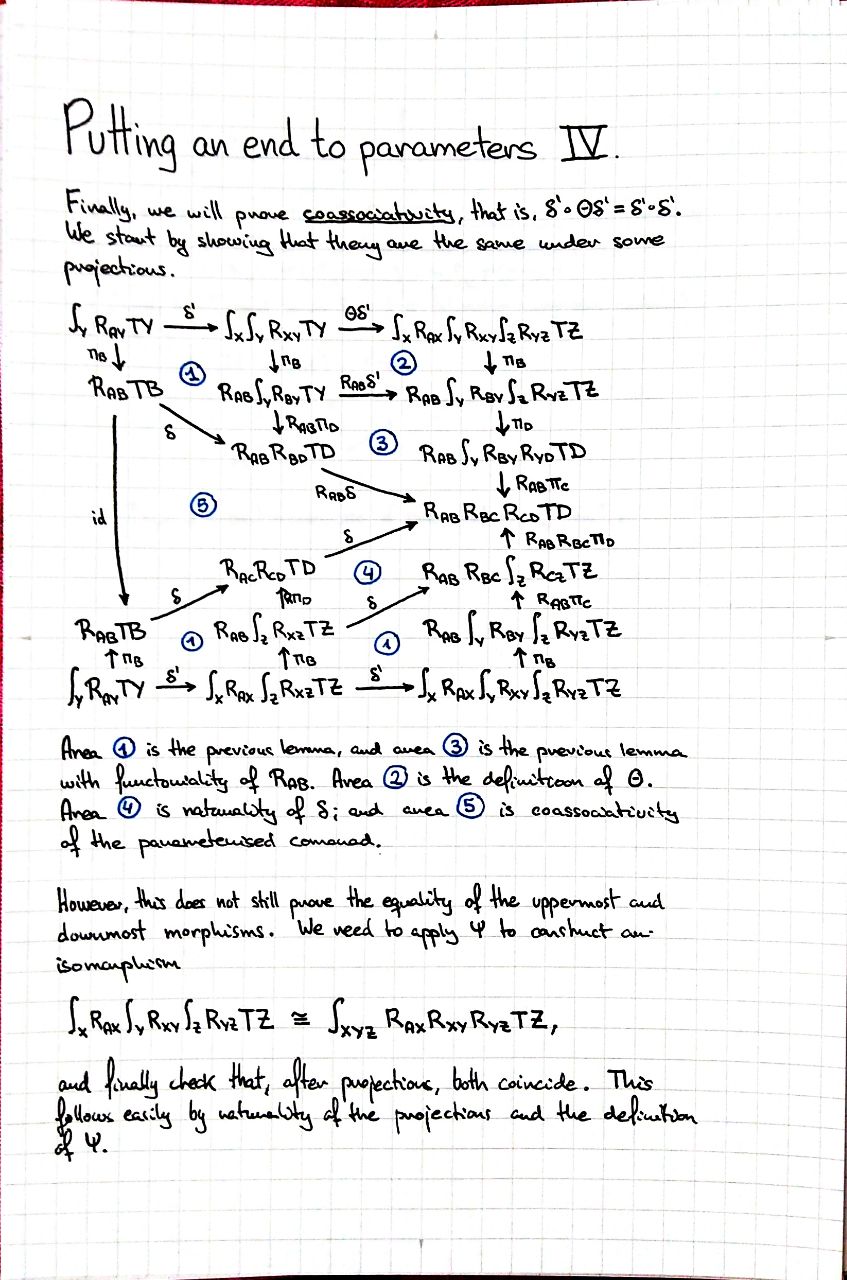 Putting an end to parameters IV.
Finally, we will prove coassociativity, that is, δ'∘Θδ' = δ'∘δ'.
We start by showing that theny are the same under some
projections.
∫_Y R_AY TY —δ'→ ∫_X ∫_Y R_XY TY —Θδ'→ ∫_X R_AX ∫_Y R_XY ∫_Z R_YZ TZ
π_B ↓ ① ↓ π_B ② ↓ π_B
R_AB TB R_AB ∫_Y R_BY TY —R_AB δ'→ R_AB ∫_Y R_BY ∫_Z R_YZ TZ
δ ↓ R_AB π_D ↓ π_D
R_AB R_BD TD ③ R_AB ∫_Y R_BY R_YD TD
R_AB δ ↓ R_AB π_C
id ⑤ R_AB R_BC R_CD TD
δ ↑ R_AB R_BC π_D
R_AC R_CD TD ④ R_AB R_BC ∫_Z R_CZ TZ
δ ↑ Rπ_D δ ↑ R_AB π_C
R_AB TB ① R_AB ∫_Z R_XZ TZ ① R_AB ∫_Y R_BY ∫_Z R_YZ TZ
↑ π_B ↑ π_B ↑ π_B
∫_Y R_AY TY —δ'→ ∫_X R_AX ∫_Z R_XZ TZ —δ'→ ∫_X R_AX ∫_Y R_XY ∫_Z R_YZ TZ
Area ① is the previous lemma, and area ③ is the previous lemma
with functoriality of R_AB. Area ② is the definitioon of Θ.
Area ④ is naturality of δ; and area ⑤ is coassociativity
of the parameterised comonad.
However, this does not still prove the equality of the uppermost and
downmost morphisms. We need to apply Ψ to construct an
isomorphism
∫_X R_AX ∫_Y R_XY ∫_Z R_YZ TZ ≅ ∫_XYZ R_AX R_XY R_YZ TZ,
and finally check that, after projections, both coincide. This
follows easily by naturality of the projections and the definition
of Ψ.